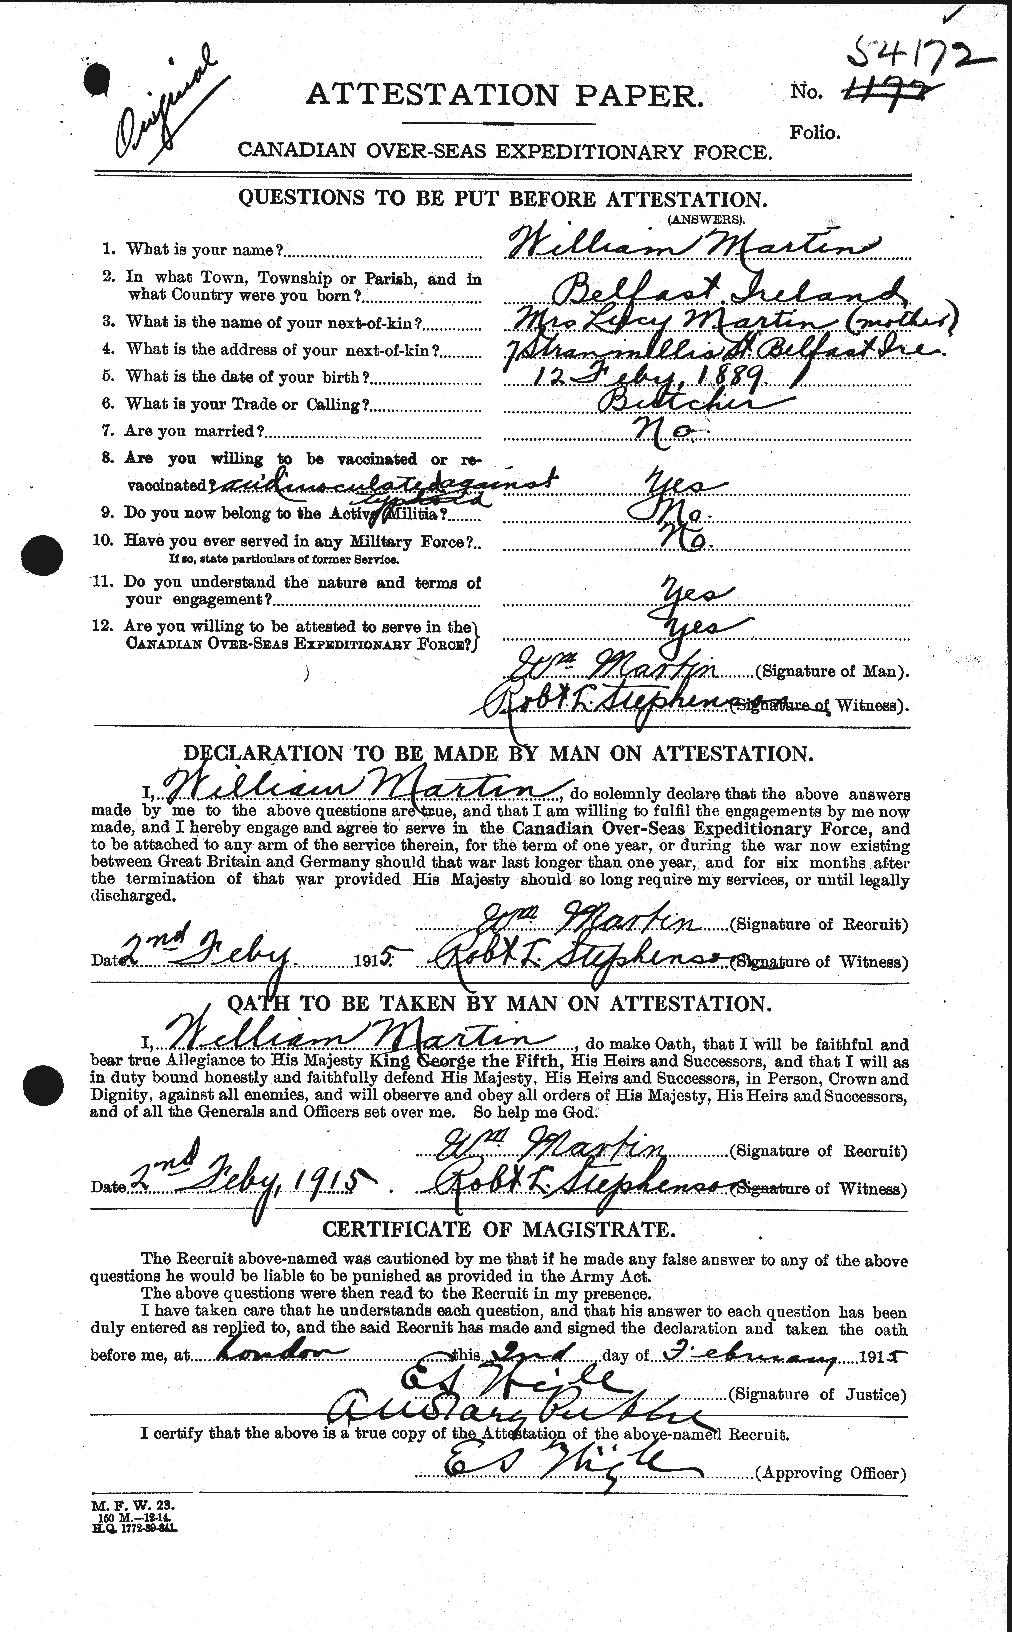 54172
Original
ATTESTATION PAPER.
No. 1172
Folio.
CANADIAN OVER-SEAS EXPEDITIONARY FORCE.
QUESTIONS TO BE PUT BEFORE ATTESTATION.
(ANSWERS).
1. What is your name? William Martin
2. In what Town, Township or Parish, and in
what Country were you born? Belfast, Ireland
3. What is the name of your next-of-kin? Mrs Lucy Martin (mother)
4. What is the address of your next-of-kin? 7 Stranmillis St. Belfast Ire.
5. What is the date of your birth? 12 Feby, 1889.
6. What is your Trade or Calling? Butcher
7. Are you married? No.
8. Are you willing to be vaccinated or re-
vaccinated? and inoculated against Yes
typhoid
9. Do you now belong to the Active Militia? No.
10. Have you ever served in any Military Force? No.
If so, state particulars of former Service.
11. Do you understand the nature and terms of
your engagement? Yes
12. Are you willing to be attested to serve in the
CANADIAN OVER-SEAS EXPEDITIONARY FORCE? Yes
Wm Martin (Signature of Man).
Robt L. Stephenson (Signature of Witness).
DECLARATION TO BE MADE BY MAN ON ATTESTATION.
I, William Martin, do solemnly declare that the above answers
made by me to the above questions are true, and that I am willing to fulfil the engagements by me now
made, and I hereby engage and agree to serve in the Canadian Over-Seas Expeditionary Force, and
to be attached to any arm of the service therein, for the term of one year, or during the war now existing
between Great Britain and Germany should that war last longer than one year, and for six months after
the termination of that war provided His Majesty should so long require my services, or until legally
discharged.
Wm Martin (Signature of Recruit)
Date 2nd Feby. 1915 Robt L. Stephenson (Signature of Witness)
OATH TO BE TAKEN BY MAN ON ATTESTATION.
I, William Martin, do make Oath, that I will be faithful and
bear true Allegiance to His Majesty King George the Fifth, His Heirs and Successors, and that I will as
in duty bound honestly and faithfully defend His Majesty, His Heirs and Successors, in Person, Crown and
Dignity, against all enemies, and will observe and obey all orders of His Majesty, His Heirs and Successors,
and of all the Generals and Officers set over me. So help me God.
Wm Martin (Signature of Recruit)
Date 2nd Feby, 1915. Robt L. Stephenson (Signature of Witness)
CERTIFICATE OF MAGISTRATE.
The Recruit above-named was cautioned by me that if he made any false answer to any of the above
questions he would be liable to be punished as provided in the Army Act.
The above questions were then read to the Recruit in my presence.
I have taken care that he understands each question, and that his answer to each question has been
duly entered as replied to, and the said Recruit has made and signed the declaration and taken the oath
before me, at London this 2nd day of February 1915
E S Wigle (Signature of Justice)
A Notary Public
I certify that the above is a true copy of the Attestation of the above-named Recruit.
E S Wigle (Approving Officer)
M. F. W. 23.
150 M.—12-14.
H.Q. 1772-39-841.